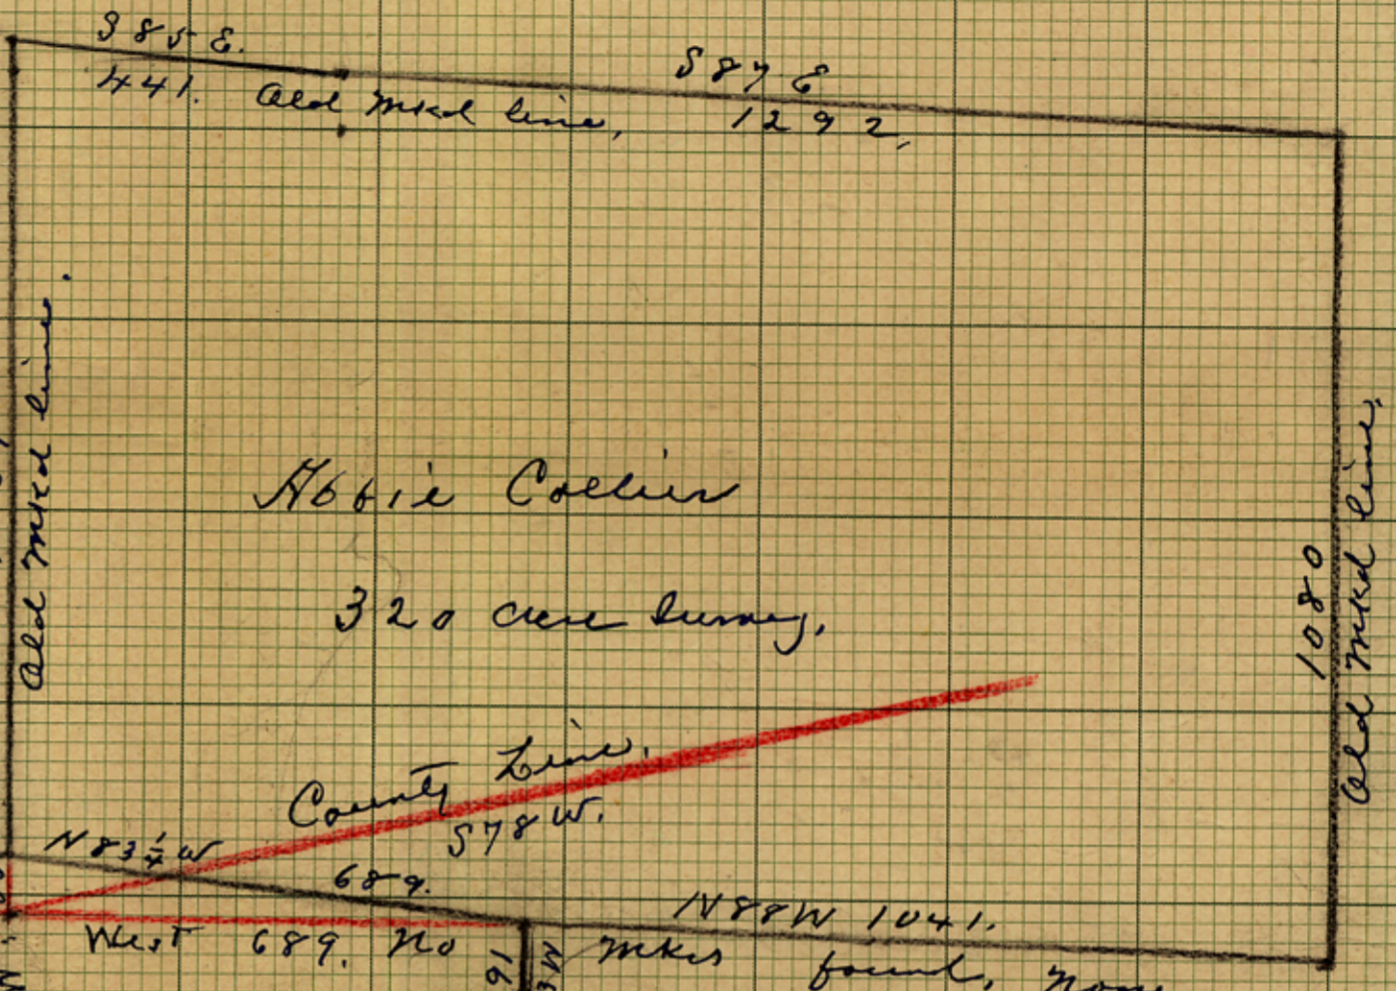 S 85 E.
441. Old mkd line,
S 87 E
1292,
Old mkd line.
Abbie Collier
320 acre Survey,
1080
Old mkd line,
County Line.
S 78 W.
N 83 1/4 W
689.
N 88 W 1041.
West 689. No mks found,
16